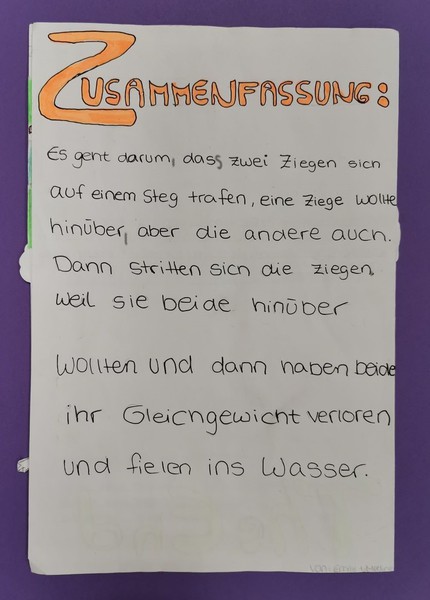 ZUSAMMENFASSUNG:
Es geht darum, dass zwei Ziegen sich
auf einem Steg trafen, eine Ziege wollte
hinüber, aber die andere auch.
Dann stritten sich die Ziegen,
weil sie beide hinüber
wollten und dann haben beide
ihr Gleichgewicht verloren
und fielen ins Wasser.